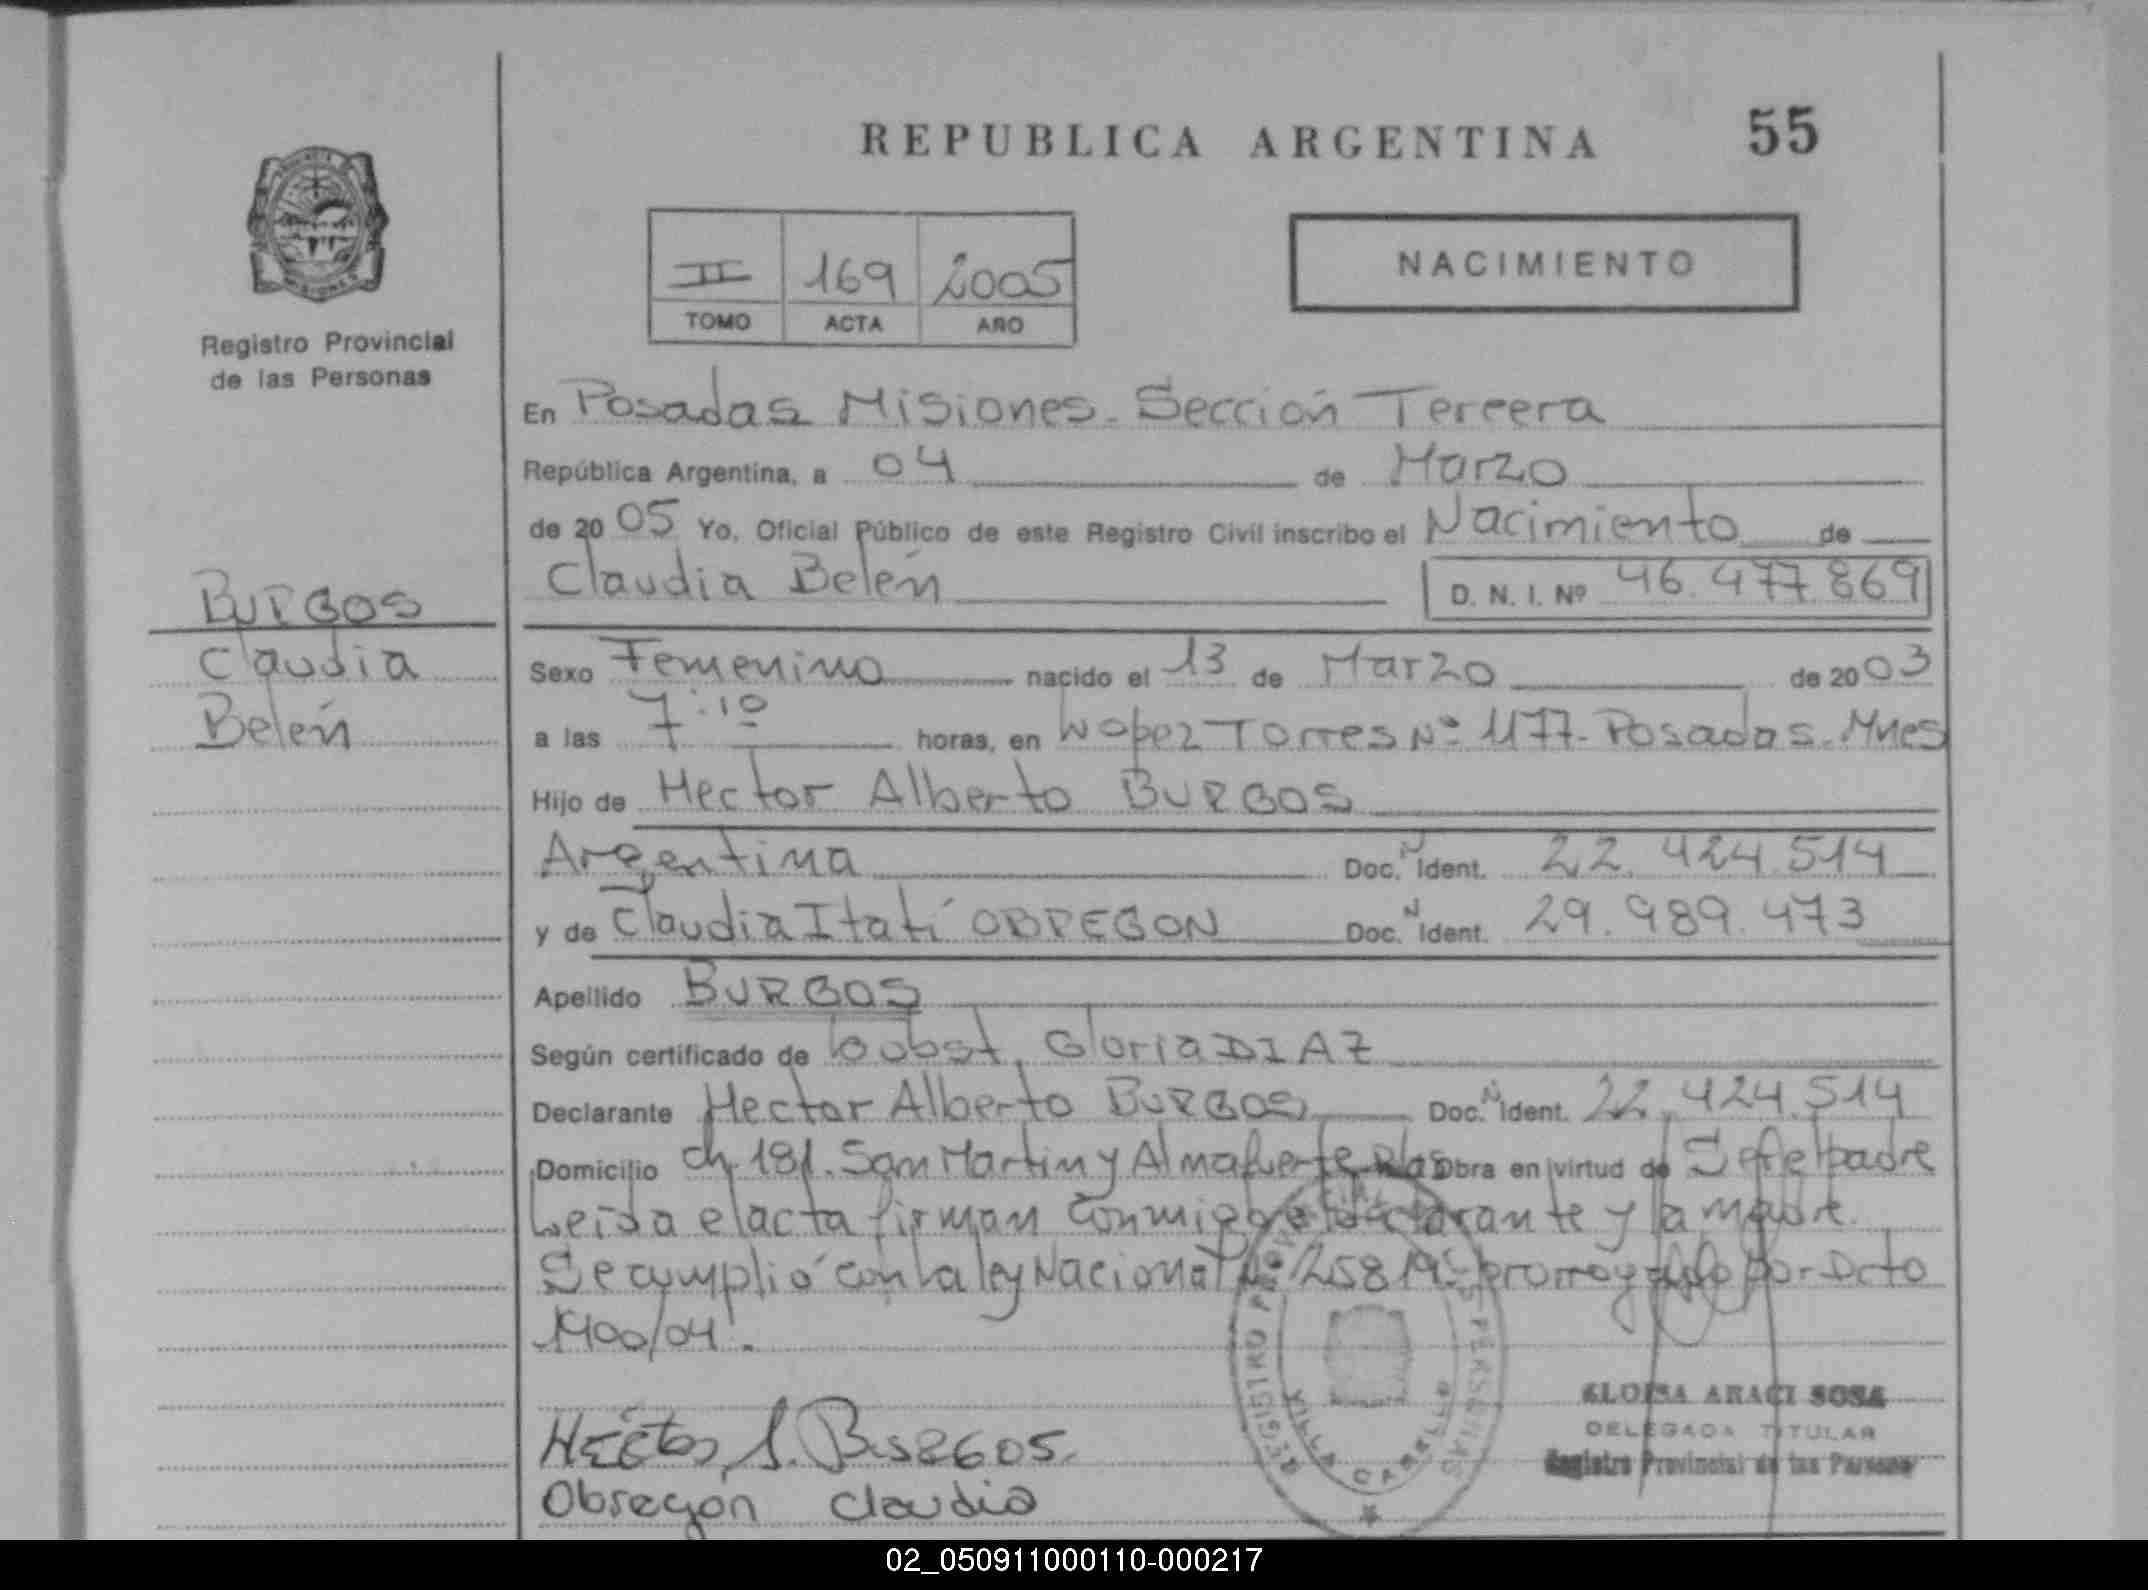 REPUBLICA ARGENTINA 55
II 169 2005
TOMO ACTA AÑO
NACIMIENTO
Registro Provincial
de las Personas
BURGOS
Claudia
Belén
En Posadas Misiones. Sección Tercera
República Argentina, a 04 de Marzo
de 20 05 Yo, Oficial Público de este Registro Civil inscribo el Nacimiento de
Claudia Belén D. N. I. Nº 46.477.869
Sexo Femenino nacido el 13 de Marzo de 20 03
a las 7:10 horas, en López Torres Nº 1177- Posadas. Mnes
Hijo de Hector Alberto BURGOS
Argentina Doc. N Ident. 22.424.514
y de Claudia Itatí OBREGON Doc. N Ident. 29.989.473
Apellido BURGOS
Según certificado de Obst. Gloria DIAZ
Declarante Hector Alberto BURGOS Doc. N Ident. 22.424.514
Domicilio ch. 181. San Martin y Almafuerte Pdas Obra en virtud de Ser el padre
Leída el acta firman conmigo el declarante y la madre.
Se cumplió con la ley Nacional Nº 25819- prorrogado por Dcto
1900/04.
Héctor A. BURGOS.
Obregón Claudia
REGISTRO PROVINCIAL DE LAS PERSONAS
VILLA CABELLO
ELOISA ARACI SOSA
DELEGADA TITULAR
Registro Provincial de las Personas
02_050911000110-000217